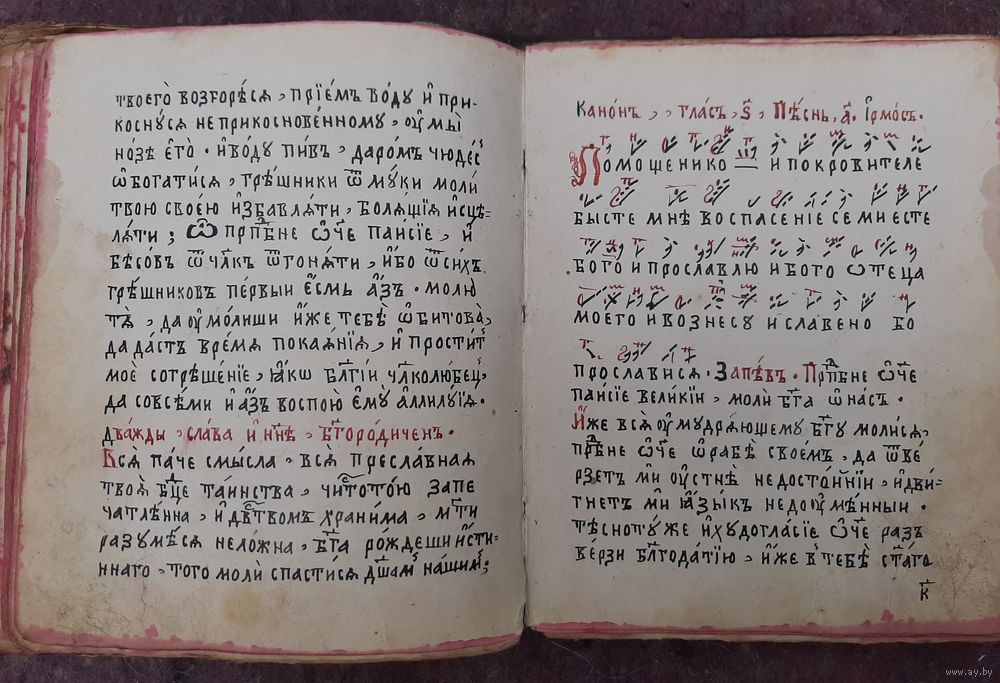 твоегѡ̀ возгорѣ́сѧ , прїе́мъ во́дꙋ и҆ при-
коснꙋ́сѧ неприкосновѣ́нномꙋ , оу҆мы̀
но́зѣ є҆гѡ̀ . и҆во́дꙋ пи́въ , даро́мъ чюде́с
ѡ҆богати́сѧ , грѣ́шники ѿмꙋ́ки моли́
твою свое́ю и҆збавлѧ́ти , болѧ́щїѧ и҆сцѣ-
лѧ́ти ; Ѽ прп҃бне ѻ҆́ч҃е паисїе , и҆
бѣ́совъ ѿчл҃къ ѿгонѧ́ти , и҆́бо ѿси́хъ
грѣ́шниковъ пе́рвыи є҆́смь а҆́зъ . молю
тѧ̀ , да оу҆мо́лиши и҆́же тебѣ̀ ѡ҆битова̀,
дада́стъ вре́мѧ покаѧ́нїѧ , и҆ прости́т
моѐ сотрѣше́нїе , ꙗ҆́кѡ бл҃гі́и чл҃колю́бец,
да совсѣ́ми и҆ а҆́зъ воспою є҆мꙋ̀ аллилꙋ́їѧ .
два́жды , слава и҆ нн҃ѣ , бг҃оро́диченъ .
Всѧ̀ па́че смы́сла , всѧ̀ пресла́внаѧ
твоѧ̀ бц҃е та́инства , чи́тото́ю запе
чатлѣ́нна , и҆дв҃твомъ храни́ма , м҃ти
разꙋмѣ́сѧ нело́жна , бг҃а рождеши и҆́сти-
ннаго , того молѝ спасти́сѧ дш҃амъ на́шимъ ;
Кано́нъ , , гла́съ , ѕ҃ , Пѣ́снь , а҃ . І҆рмо́съ .
Помощенико и покровителе
бысте мнѣ воспасенїе семи есте
бого и прославлю ибого ѡтеца
моего ивознесꙋ иславено бо
прослависѧ . Запѣ́въ . Прп҃бне ѻ҆́ч҃е
паи́сїе вели́кїи , молѝ бг҃а ѡ҆на́съ .
И҆́же всѧ̀ оу҆мꙋдрѧ́ющемꙋ бг҃ꙋ моли́сѧ,
прп҃бне ѻ҆́ч҃е ѡ҆рабѣ̀ свое́мъ , да ѿве
рзетъ мѝ оу҆стнѣ̀ недосто́йнїи , и҆дви-
гнетъ мѝ ꙗ҆зы́къ недооу҆мѣ́нныи .
тѣснотꙋ́же и҆хꙋдогла́сїе ѻ҆́ч҃е разъ
ве́рзи бл҃года́тїю , и҆́же в̾тебѣ̀ ст҃а́гѡ
к҃
www.ay.by